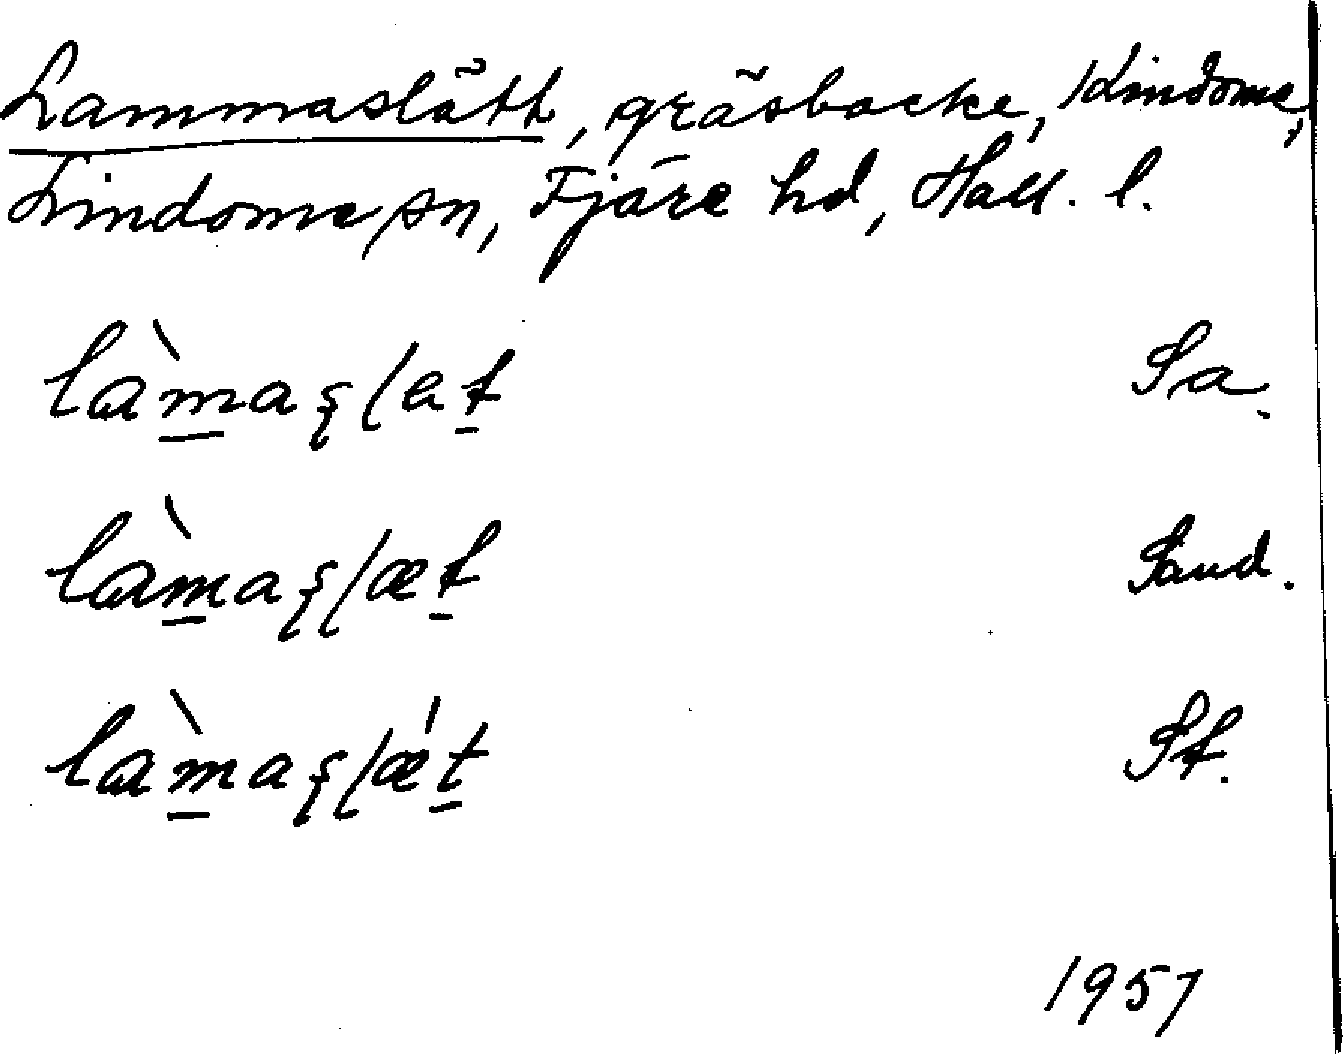 Lammaslätt, gräsbacke, Kindome,
Lindome sn, Fjäre hd, Hall. l.
làmaʂɭat Sa.
làmaʂɭæt Sand.
làmaʂɭǽt St.
1957